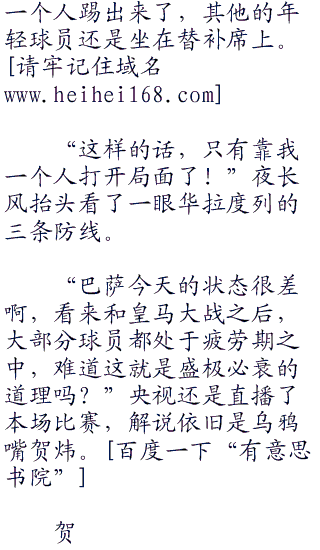 一个人踢出来了，其他的年
轻球员还是坐在替补席上。
[请牢记住域名
www.heihei168.com]
“这样的话，只有靠我
一个人打开局面了！”夜长
风抬头看了一眼华拉度列的
三条防线。
“巴萨今天的状态很差
啊，看来和皇马大战之后，
大部分球员都处于疲劳期之
中，难道这就是盛极必衰的
道理吗？”央视还是直播了
本场比赛，解说依旧是乌鸦
嘴贺炜。[百度一下“有意思
书院”]
贺